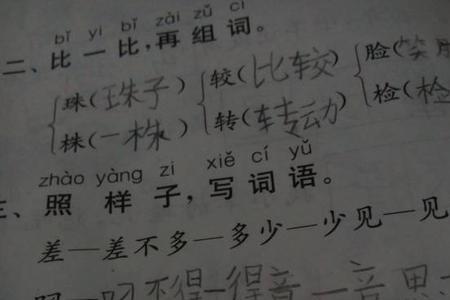 bǐ yi bǐ zài zǔ cí
二、比一比,再组词。
珠(珠子) 较(比较) 脸(笑
株(一株) 转(转动) 检(检
zhào yàng zi xiě cí yǔ
三、照样子,写词语。
差—差不多—多少—少见—见
不得—得意—意思